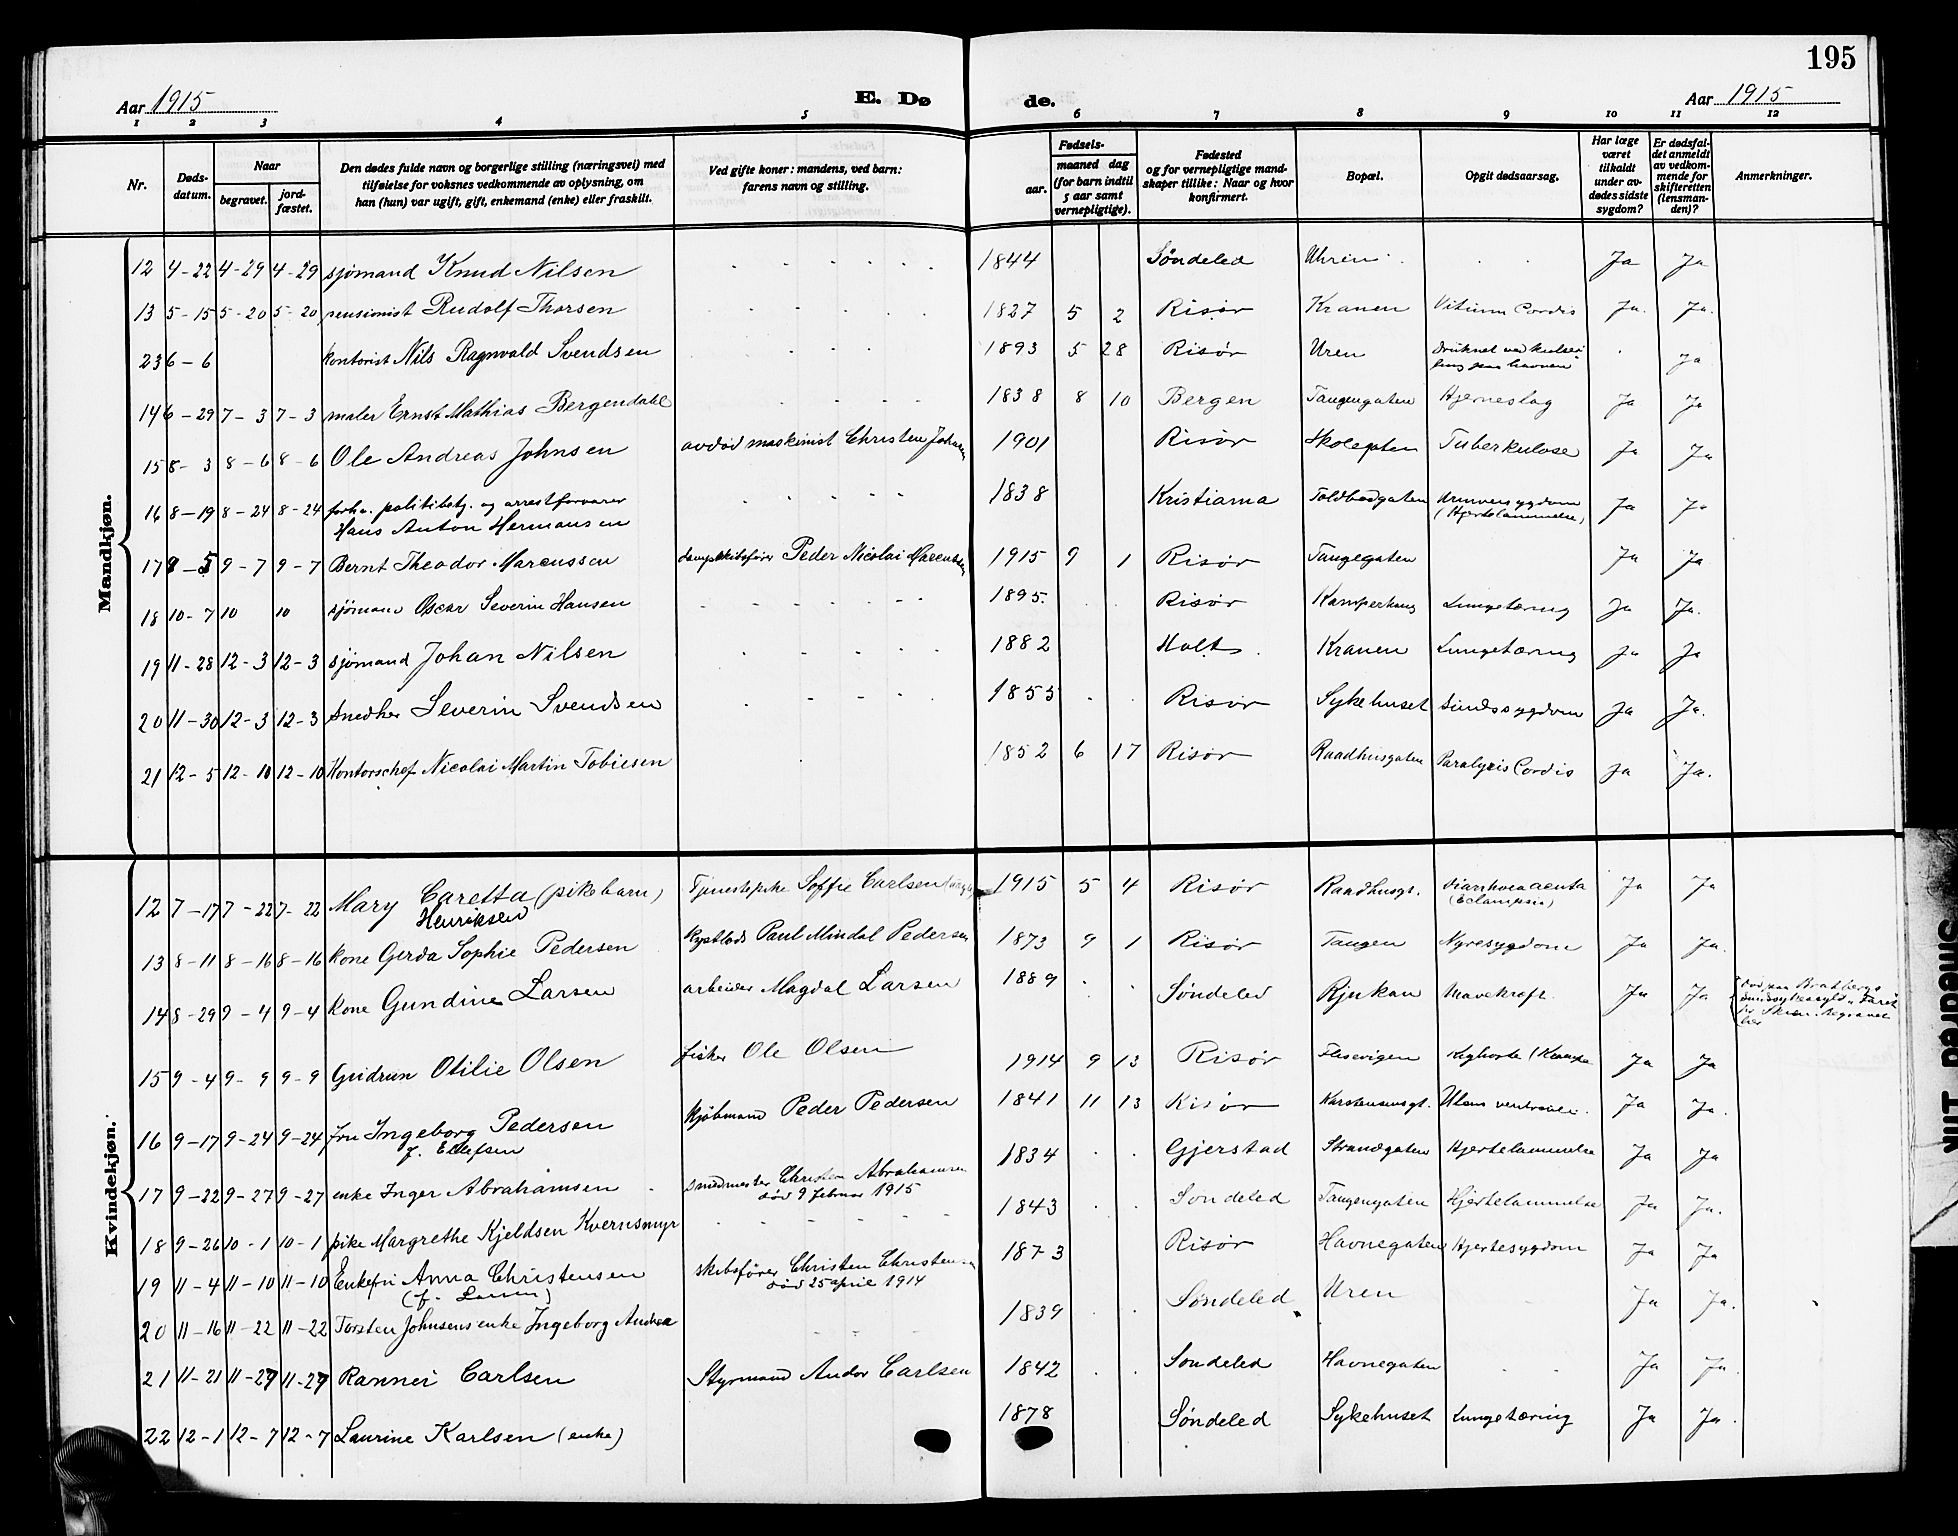 195
Aar 1915
E. Dø
de.
Aar 1915
1 2 3 4 5 6 7 8 9 10 11 12
Nr.
Døds-
datum.
Naar
begravet.
jord-
fæstet.
Den dødes fulde navn og borgerlige stilling (næringsvei) med
tilføielse for voksnes vedkommende av oplysning, om
han (hun) var ugift, gift, enkemand (enke) eller fraskilt.
Ved gifte koner: mandens, ved barn:
farens navn og stilling.
Fødsels-
aar.
maaned dag
(for barn indtil
5 aar samt
vernepligtige).
Fødested
og for vernepligtige mand-
skaper tillike: Naar og hvor
konfirmert.
Bopæl.
Opgit dødsaarsag.
Har læge
været
tilkaldt
under av-
dødes sidste
sygdom?
Er dødsfal-
det anmeldt
av vedkom-
mende for
skifteretten
(lensman-
den)?
Anmerkninger.
Mandkjøn.
12 4-22 4-29 4-29 sjømand Knud Nilsen 1844 Søndeled Uhren Ja Ja
13 5-15 5-20 5-20 pensionist Rudolf Thorsen 1827 5 2 Risør Kranen Vitium Cordis Ja. Ja.
23 6-6 kontorist Nils Ragnvald Svendsen 1893 5 28 Risør Uren druknet ved
paa havnen Ja
14 6-29 7-3 7-3 maler Ernst Mathias Bergendahl 1838 8 10 Bergen Tangengaten Hjerneslag Ja Ja
15 8-3 8-6 8-6 Ole Andreas Johnsen avdød maskinist Christen Johnsen 1901 Risør Skolegaten Tuberkulose Ja Ja
16 8-19 8-24 8-24 forhv. politibetj. og arrestforvarer
Hans Anton Hermansen 1838 Kristiania Toldbodgaten
(Hjertelammelse) Ja Ja
17 9-5 9-7 9-7 Bernt Theodor Marcussen dampskibsfører Peder Nicolai Marcussen 1915 9 1 Risør Tangegaten Ja Ja
18 10-7 10 10 sjømand Oscar Severin Hansen 1895. Risør Kamperhaug Lungetæring Ja Ja.
19 11-28 12-3 12-3 sjømand Johan Nilsen 1882 Holt Kranen Lungetæring Ja Ja
20 11-30 12-3 12-3 Snedker Severin Svendsen 1855 Risør Sykehuset Sindssygdom Ja Ja.
21 12-5 12-10 12-10 Kontorschef Nicolai Martin Tobiesen 1852 6 17 Risør Raadhusgaten Paralysis Cordis Ja Ja.
Kvindekjøn.
12 7-17 7-22 7-22 Mary Caretta (pikebarn)
Henriksen Tjenestepike Soffie Carlsen 1915 5 4 Risør Raadhusgt. Diarrhoea acuta
(Eclampsia) Ja Ja
13 8-11 8-16 8-16 kone Gerda Sophie Pedersen Kystlods Paul Mindal Pedersen 1873 9 1 Risør Tangen Nyresygdom Ja Ja.
14 8-29 9-4 9-4 kone Gundine Larsen arbeider Magdal Larsen 1889 Søndeled Rjukan Mavekræft Ja Ja Død paa Bratbergs

Skien. Begravet
her
15 9-4 9-9 9-9 Gudrun Otilie Olsen fisker Ole Olsen 1914 9 13 Risør Flisvigen Kighoste Ja Ja
16 9-17 9-24 9-24 fru Ingeborg Pedersen
f. Ellefsen Kjøbmand Peder Pedersen 1841 11 13 Risør Karstensensgt. Ulcus ventriculi. Ja Ja.
17 9-22 9-27 9-27 enke Inger Abrahamsen smedmester Christen Abrahamsen
død 9 februar 1915 1834 Gjerstad Strandgaten Hjertelammelse Ja Ja
18 9-26 10-1 10-1 pike Margrethe Kjeldsen Kvernsmyr 1843 Søndeled Tangengaten Hjertelammelse Ja Ja.
19 11-4 11-10 11-10 Enkefru Anna Christensen
(f. Larsen) skibsfører Christen Christensen
død 25 april 1914 1873 Risør Havnegaten Hjertesygdom Ja Ja
20 11-16 11-22 11-22 Torsten Johnsens enke Ingeborg Andrea 1839 Søndeled Uren Ja Ja.
21 11-21 11-27 11-27 Rannei Carlsen Styrmand Andor Carlsen 1842 Søndeled Havnegaten Ja Ja.
22 12-1 12-7 12-7 Laurine Karlsen (enke) 1878 Søndeled Sykehuset Lungetæring Ja Ja.